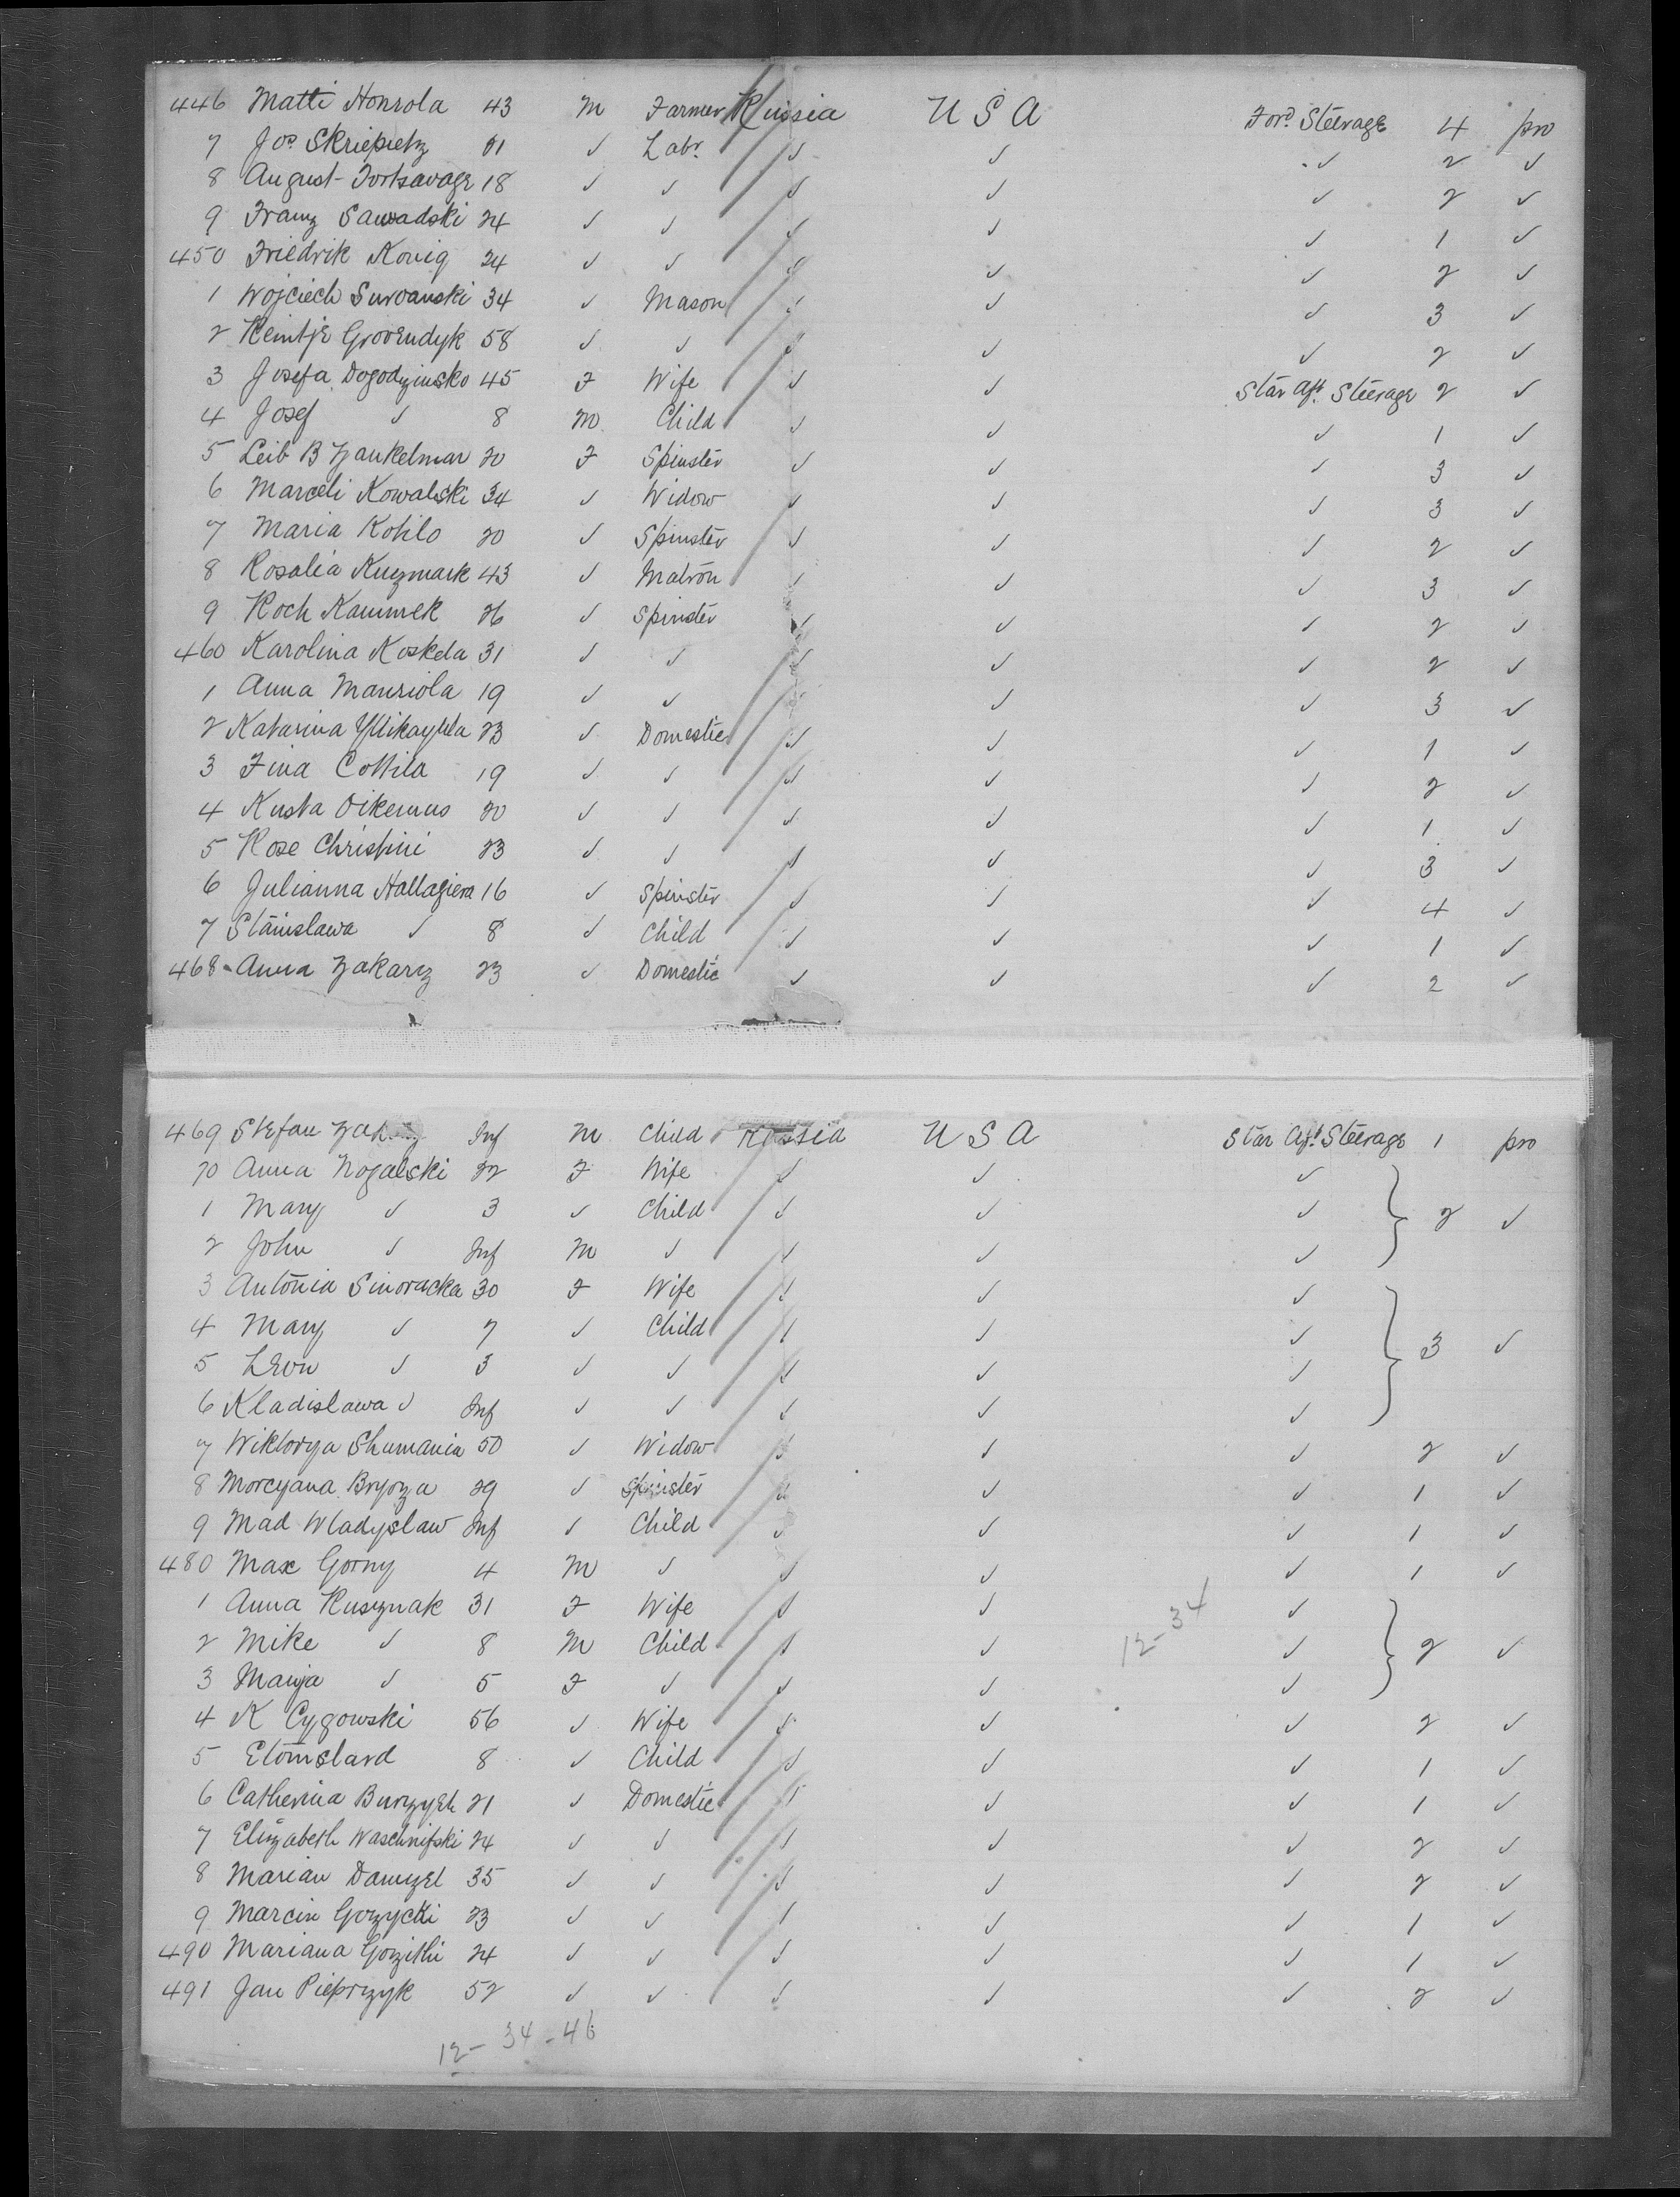 446 Matti Honrola 43 M Farmer Russia U S A For.d Steerage 4 pro
7 Jos. Skriepietz 21 ✓ Labr. ✓ ✓ ✓ 2 ✓
8 August 18 ✓ ✓ ✓ ✓ ✓ 2 ✓
9 Franz Sawadski 24 ✓ ✓ ✓ ✓ ✓ 1 ✓
450 Friedrik Konig 24 ✓ ✓ ✓ ✓ ✓ 2 ✓
1 Wojciech Survanski 34 ✓ Mason ✓ ✓ ✓ 3 ✓
2 Reintje Groovendyk 58 ✓ ✓ ✓ ✓ ✓ 2 ✓
3 Josefa Dogodzinsko 45 F Wife ✓ ✓ Star Aft. Steerage 2 ✓
4 Josef ✓ 8 M Child ✓ ✓ ✓ 1 ✓
5 Leib B Zankelmar 20 F Spinster ✓ ✓ ✓ 3 ✓
6 Marceli Kowalski 34 ✓ Widow ✓ ✓ ✓ 3 ✓
7 Maria Kohlo 20 ✓ Spinster ✓ ✓ ✓ 2 ✓
8 Rosalia Kuzmark 43 ✓ Matron ✓ ✓ ✓ 3 ✓
9 Roch Kammek 26 ✓ Spinster ✓ ✓ ✓ 2 ✓
460 Karolina Koskela 31 ✓ ✓ ✓ ✓ ✓ 2 ✓
1 Anna Manriola 19 ✓ ✓ ✓ ✓ 3 ✓
2 Katarina Yllikaylla 23 ✓ Domestic ✓ ✓ ✓ 1 ✓
3 Fina Cottila 19 ✓ ✓ ✓ ✓ ✓ 2 ✓
4 Kusta Oikemus 20 ✓ ✓ ✓ ✓ ✓ 1 ✓
5 Rose Christini 23 ✓ ✓ ✓ ✓ ✓ 3 ✓
6 Julianna Hallagiera 16 ✓ Spinster ✓ ✓ ✓ 4 ✓
7 Stanislawa ✓ 8 ✓ Child ✓ ✓ ✓ 1 ✓
468 - Anna Zakarz 23 ✓ Domestic ✓ ✓ ✓ 2 ✓
469 Stefan Inf M Child Russia U S A Star Aft. Steerage 1 pro
70 Anna Nogalski 22 F Wife ✓ ✓ ✓
1 Mary ✓ 3 ✓ Child ✓ ✓ ✓ 2 ✓
2 John ✓ Inf M ✓ ✓ ✓ ✓
3 Antonia Sinoracka 30 F Wife ✓ ✓ ✓
4 Mary ✓ 7 ✓ Child ✓ ✓ ✓ 3 ✓
5 Leon ✓ 3 ✓ ✓ ✓ ✓ ✓
6 Kladislawa ✓ Inf ✓ ✓ ✓ ✓ ✓
7 Wiktorya Shumania 50 ✓ Widow ✓ ✓ ✓ 2 ✓
8 Morcyana Bryoza 29 ✓ Spinster ✓ ✓ ✓ 1 ✓
9 Mad Wladyslaw Inf ✓ Child ✓ ✓ ✓ 1 ✓
480 Max Gorny 4 M ✓ ✓ ✓ ✓ 1 ✓
1 Anna Kusznak 31 F Wife ✓ ✓ 12-34 ✓
2 Mike ✓ 8 M Child ✓ ✓ ✓ 2 ✓
3 Manja ✓ 5 F ✓ ✓ ✓ ✓
4 K Cygowski 56 ✓ Wife ✓ ✓ ✓ 2 ✓
5 Etomslard 8 ✓ Child ✓ ✓ ✓ 1 ✓
6 Catherina Burzyeh 21 ✓ Domestic ✓ ✓ ✓ 1 ✓
7 Elizabeth Waschnifski 24 ✓ ✓ ✓ ✓ ✓ 2 ✓
8 Marian Damzel 35 ✓ ✓ ✓ ✓ ✓ 2 ✓
9 Marcin Gozycki 23 ✓ ✓ ✓ ✓ ✓ 1 ✓
490 Mariana Gozithi 24 ✓ ✓ ✓ ✓ ✓ 1 ✓
491 Jan Pieprzyk 52 ✓ ✓ ✓ ✓ ✓ 2 ✓
12-34-46